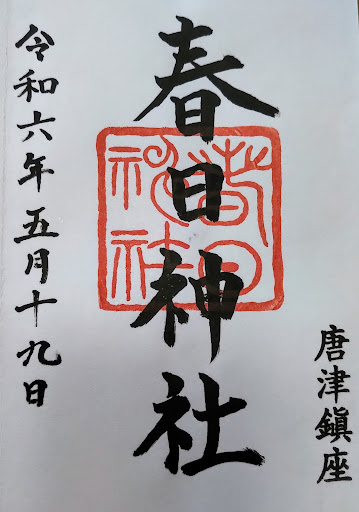 唐津鎮座
春日神社
春日神社
令和六年五月十九日